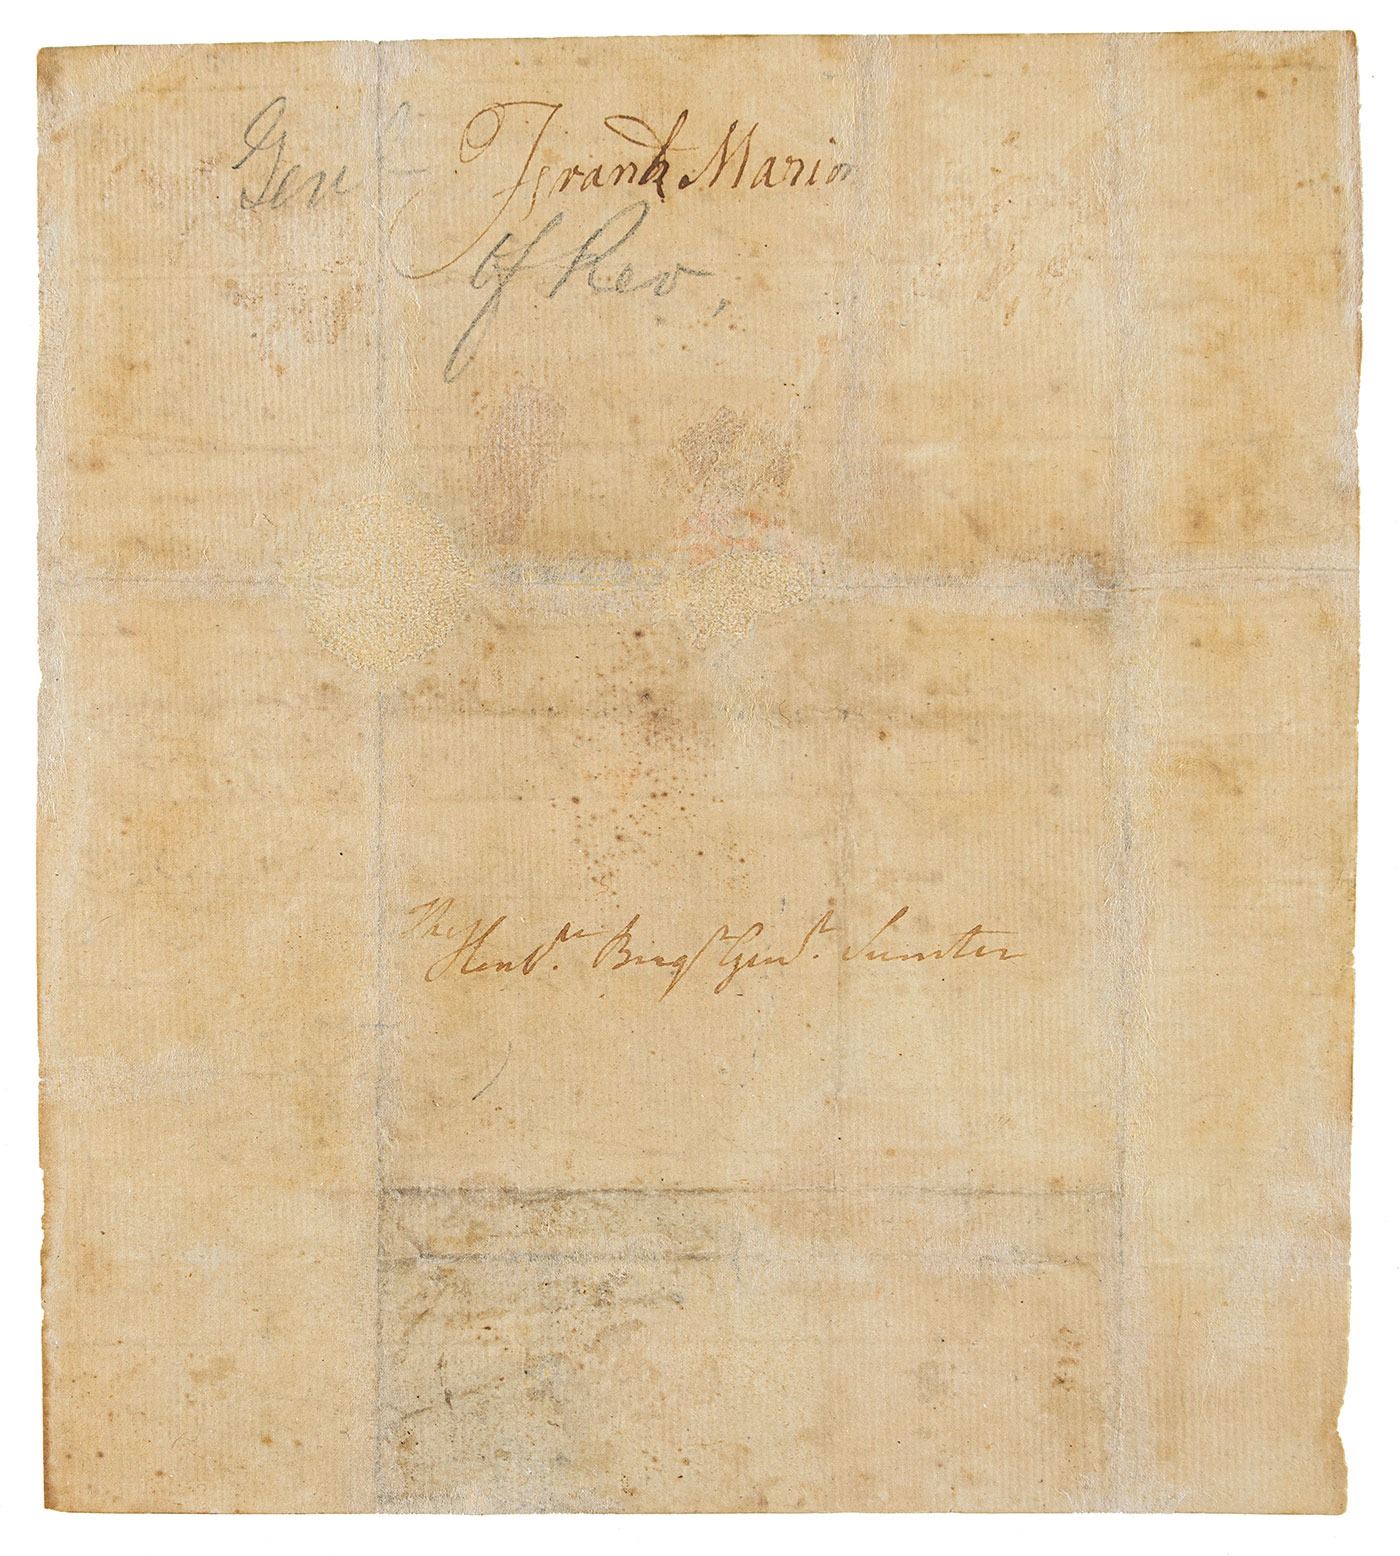 Genl Frank Marion
of Rev,
The
Honble. Brigr Genl. Sumter